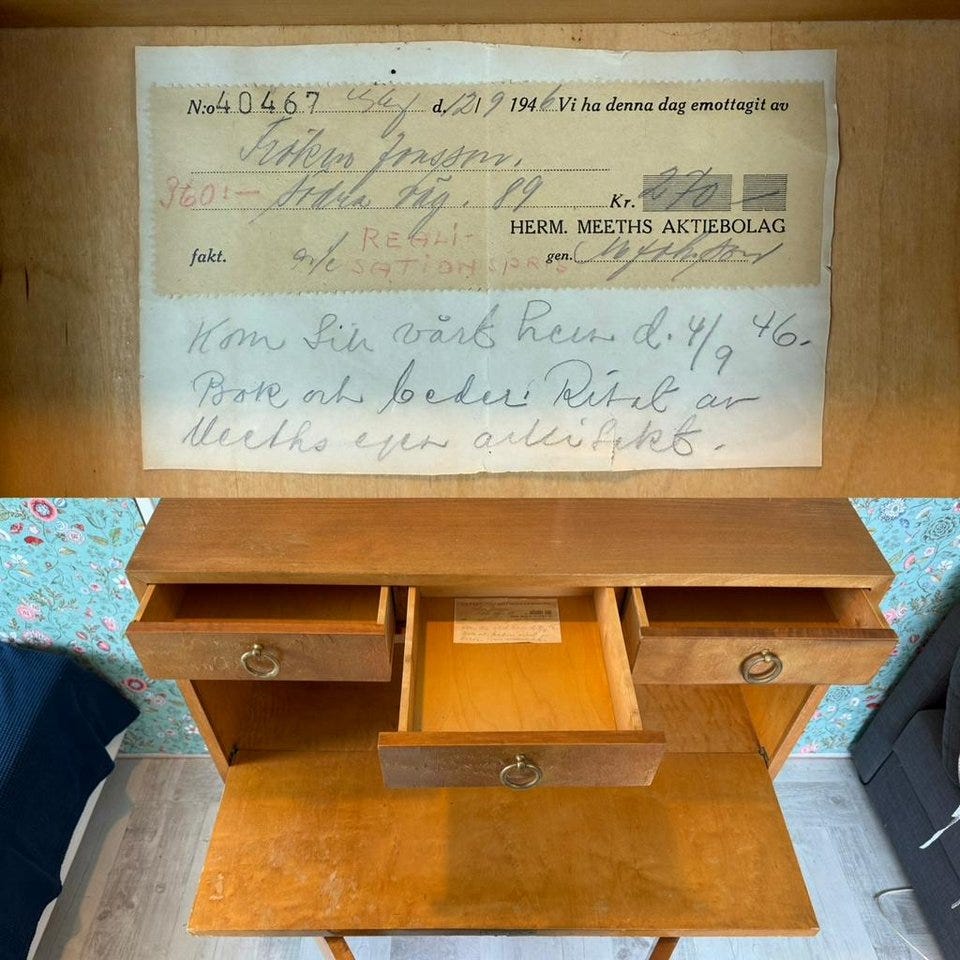 N:o 40467 d. 12/9 1946. Vi ha denna dag emottagit av
Fröken Jonsson.
360:— Södra väg. 89 Kr. 270 —
HERM. MEETHS AKTIEBOLAG
REALI-
fakt. a/c SATIONSPRIS gen.
Kom till vårt hem d. 4/9 46.
Bok och beder: Ritat av
Meeths egen arkitekt.